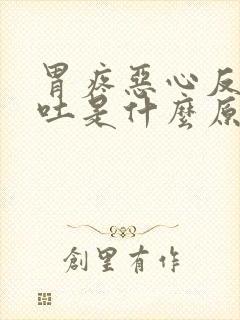 胃疼惡心反
吐是什麼原
創里有作